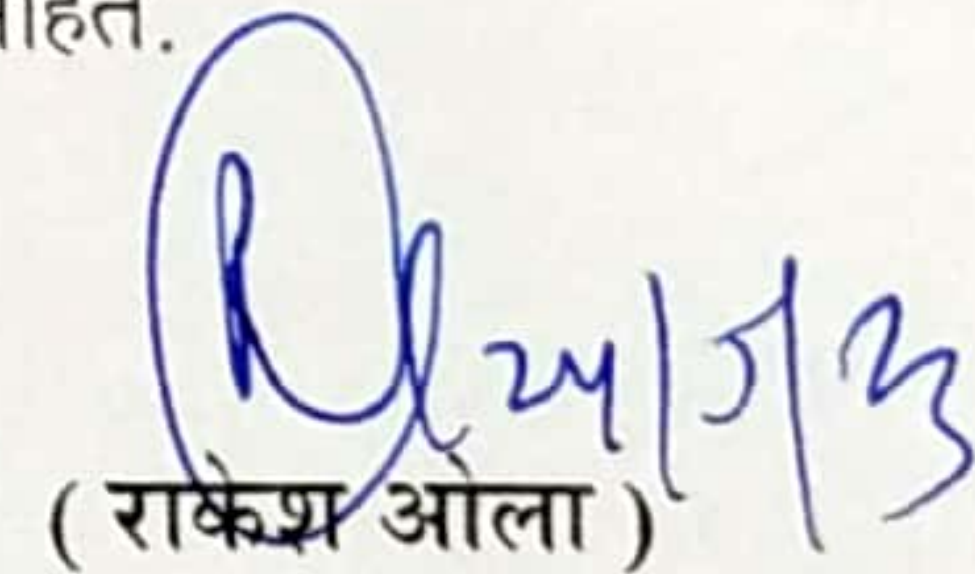 24/5/23
( राकेश ओला )